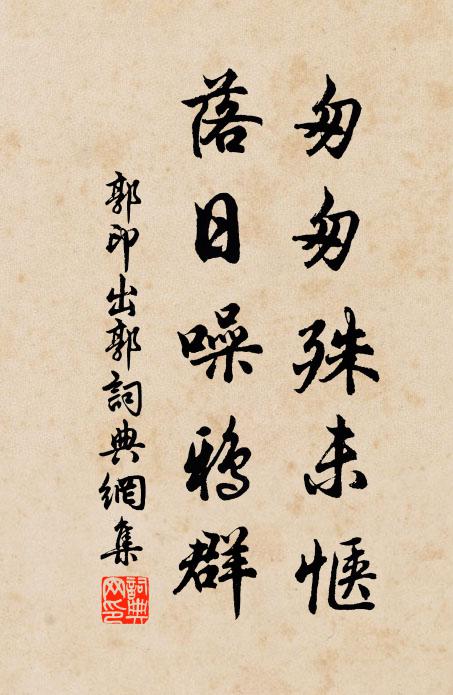 匆匆殊未愜
落日噪鴉群
郭印出郭詞典網集
詞典網印